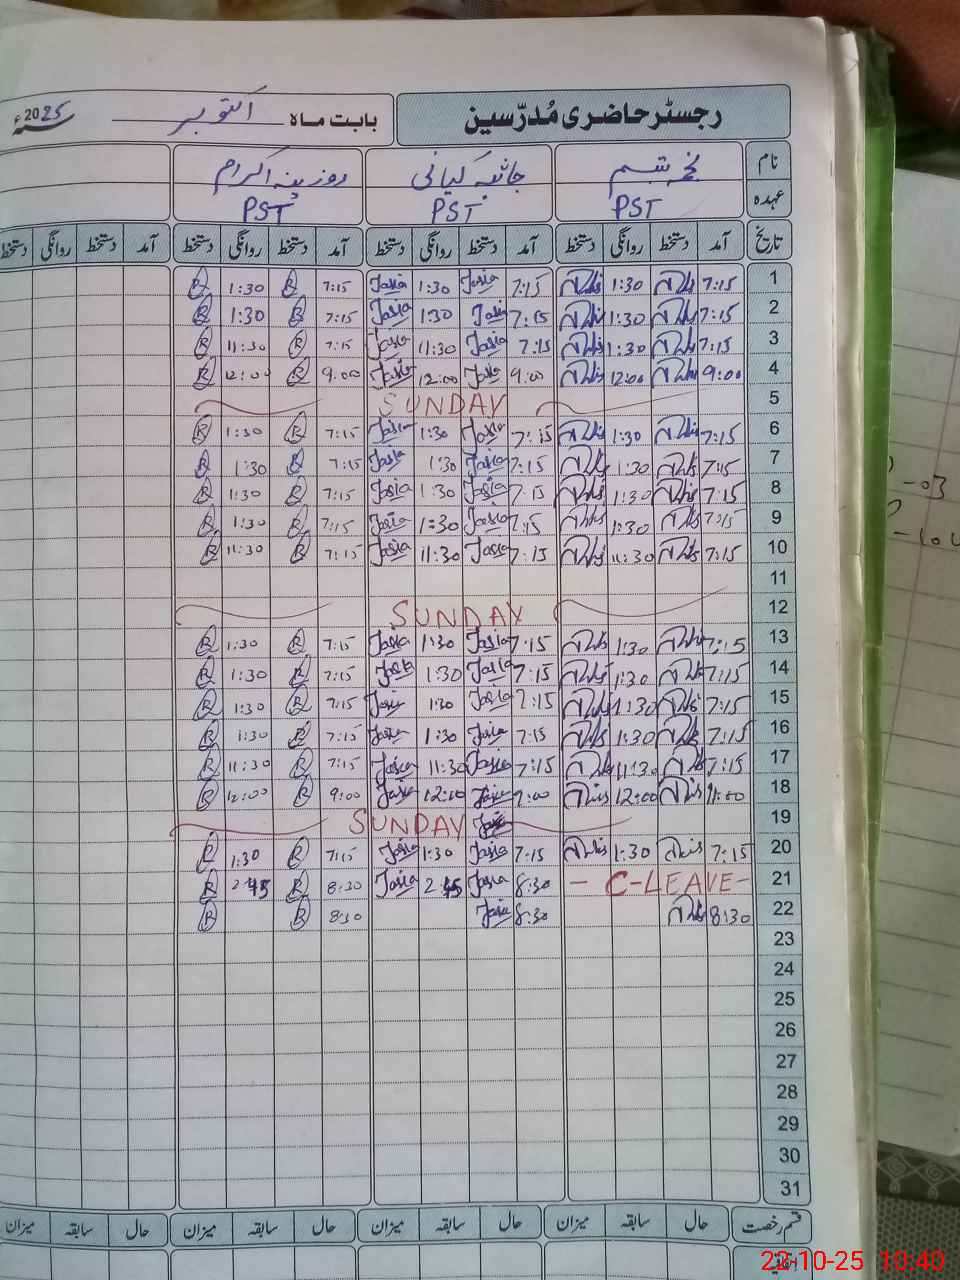 رجسٹر حاضری مُدرّسین بابت ماہ اکتوبر 2025ء
نام نجمہ تبسم کیانی روزینہ اکرام
عہدہ PST PST PST
تاریخ آمد دستخط روانگی دستخط آمد دستخط روانگی دستخط آمد دستخط روانگی دستخط آمد دستخط روانگی دستخط
1 7:15 1:30 7:15 Jasia 1:30 Jasia 7:15 R 1:30 R
2 7:15 1:30 7:15 Jasia 1:30 Jasia 7:15 R 1:30 R
3 7:15 11:30 7:15 Jasia 11:30 Jasia 7:15 R 11:30 R
4 9:00 12:00 9:00 Jasia 12:00 Jasia 9:00 R 12:00 R
5 SUNDAY
6 7:15 1:30 7:15 Jasia 1:30 Jasia 7:15 R 1:30 R
7 7:15 1:30 7:15 Jasia 1:30 Jasia 7:15 R 1:30 R
8 7:15 1:30 7:15 Jasia 1:30 Jasia 7:15 R 1:30 R
9 7:15 1:30 7:15 Jasia 1:30 Jasia 7:15 R 1:30 R
10 7:15 11:30 7:15 Jasia 11:30 Jasia 7:15 R 11:30 R
11
12 SUNDAY
13 7:15 1:30 7:15 Jasia 1:30 Jasia 7:15 R 1:30 R
14 7:15 1:30 7:15 Jasia 1:30 Jasia 7:15 R 1:30 R
15 7:15 1:30 7:15 Jasia 1:30 Jasia 7:15 R 1:30 R
16 7:15 1:30 7:15 Jasia 1:30 Jasia 7:15 R 1:30 R
17 7:15 11:30 7:15 Jasia 11:30 Jasia 7:15 R 11:30 R
18 12:00 Jasia 12:00 Jasia 9:00 R 12:00 R
19 SUNDAY
20 7:15 1:30 7:15 Jasia 1:30 Jasia 7:15 R 1:30 R
21 - C-LEAVE- 8:30 Jasia 2:45 Jasia 8:30 R 2:45 R
22 8:30 8:30 Jasia 8:30 R R
23
24
25
26
27
28
29
30
31
قسم رخصت حال سابقہ میزان حال سابقہ میزان حال سابقہ میزان حال سابقہ میزان
22-10-25 10:40